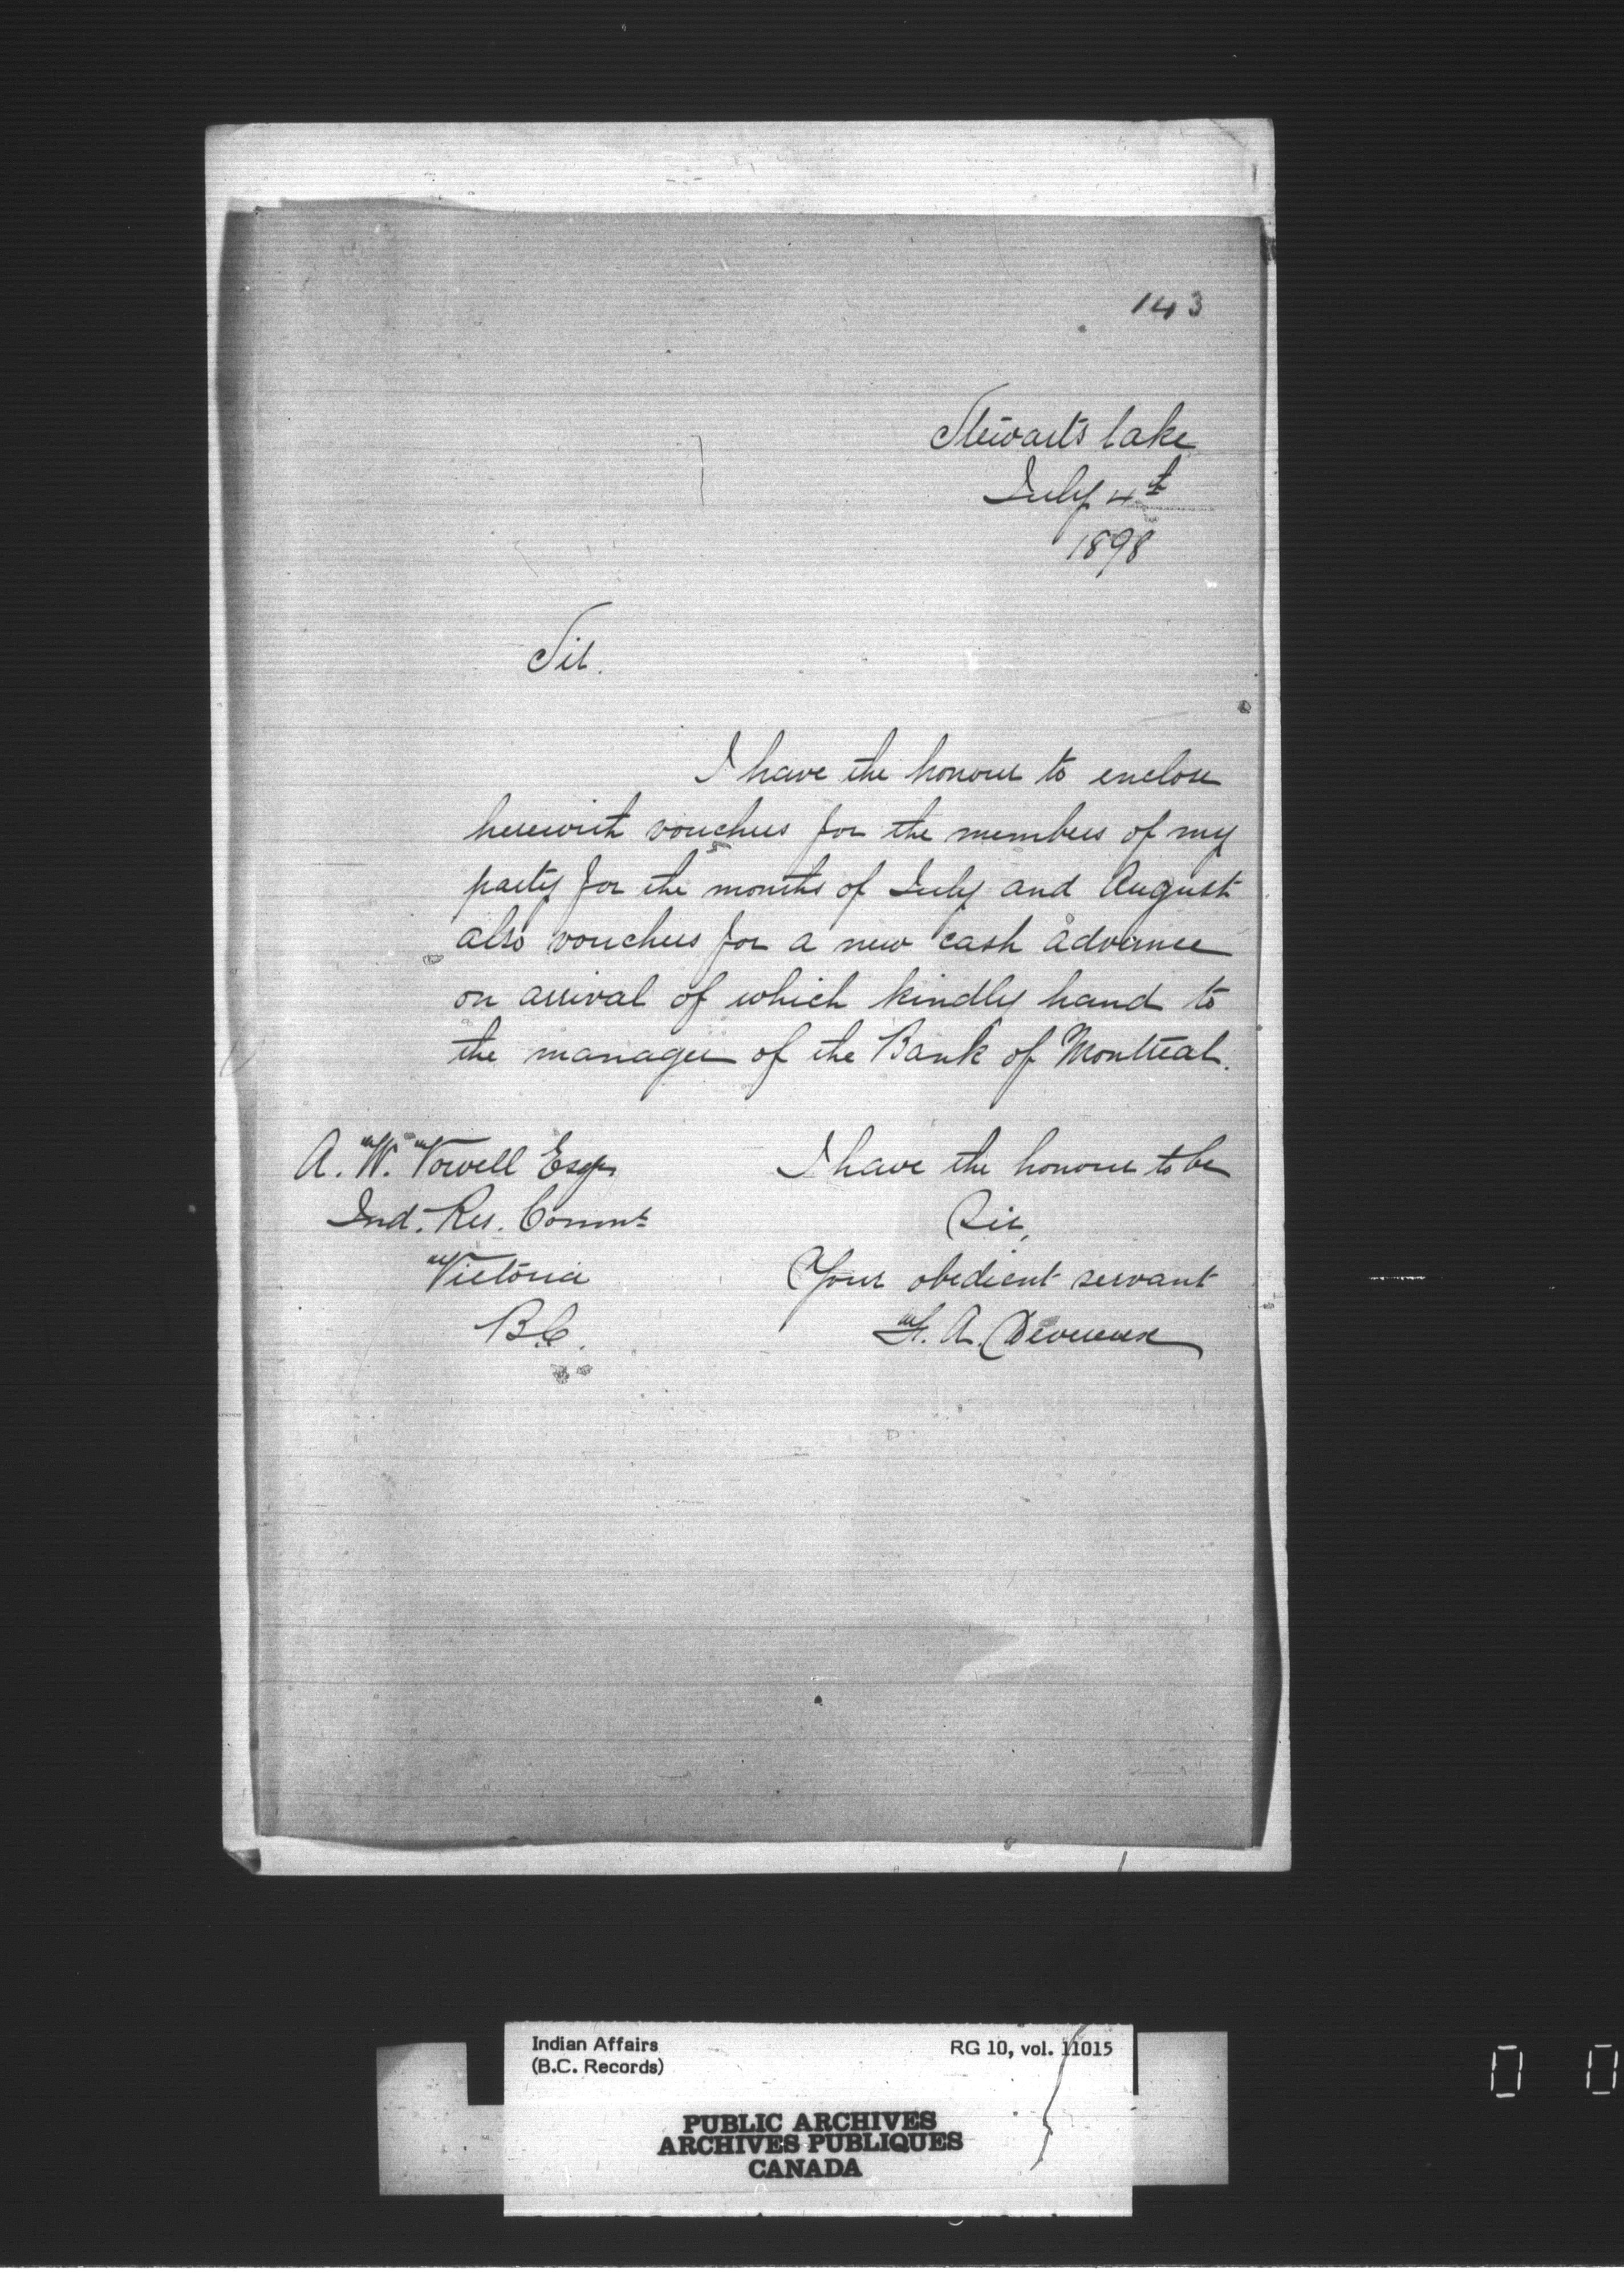 143
Stewarts lake
July 4th
1898
Sir.
I have the honour to enclose
herewith vouchers for the members of my
party for the months of July and August
also vouchers for a new cash advance
on arrival of which kindly hand to
the manager of the Bank of Montreal.
A. W. Vowell Esq.
Ind. Res. Commr
Victoria
B.C.
I have the honour to be
Sir,
Your obedient servant
F. A. Devereux
Indian Affairs
(B.C. Records)
RG 10, vol. 11015
PUBLIC ARCHIVES
ARCHIVES PUBLIQUES
CANADA
0 0